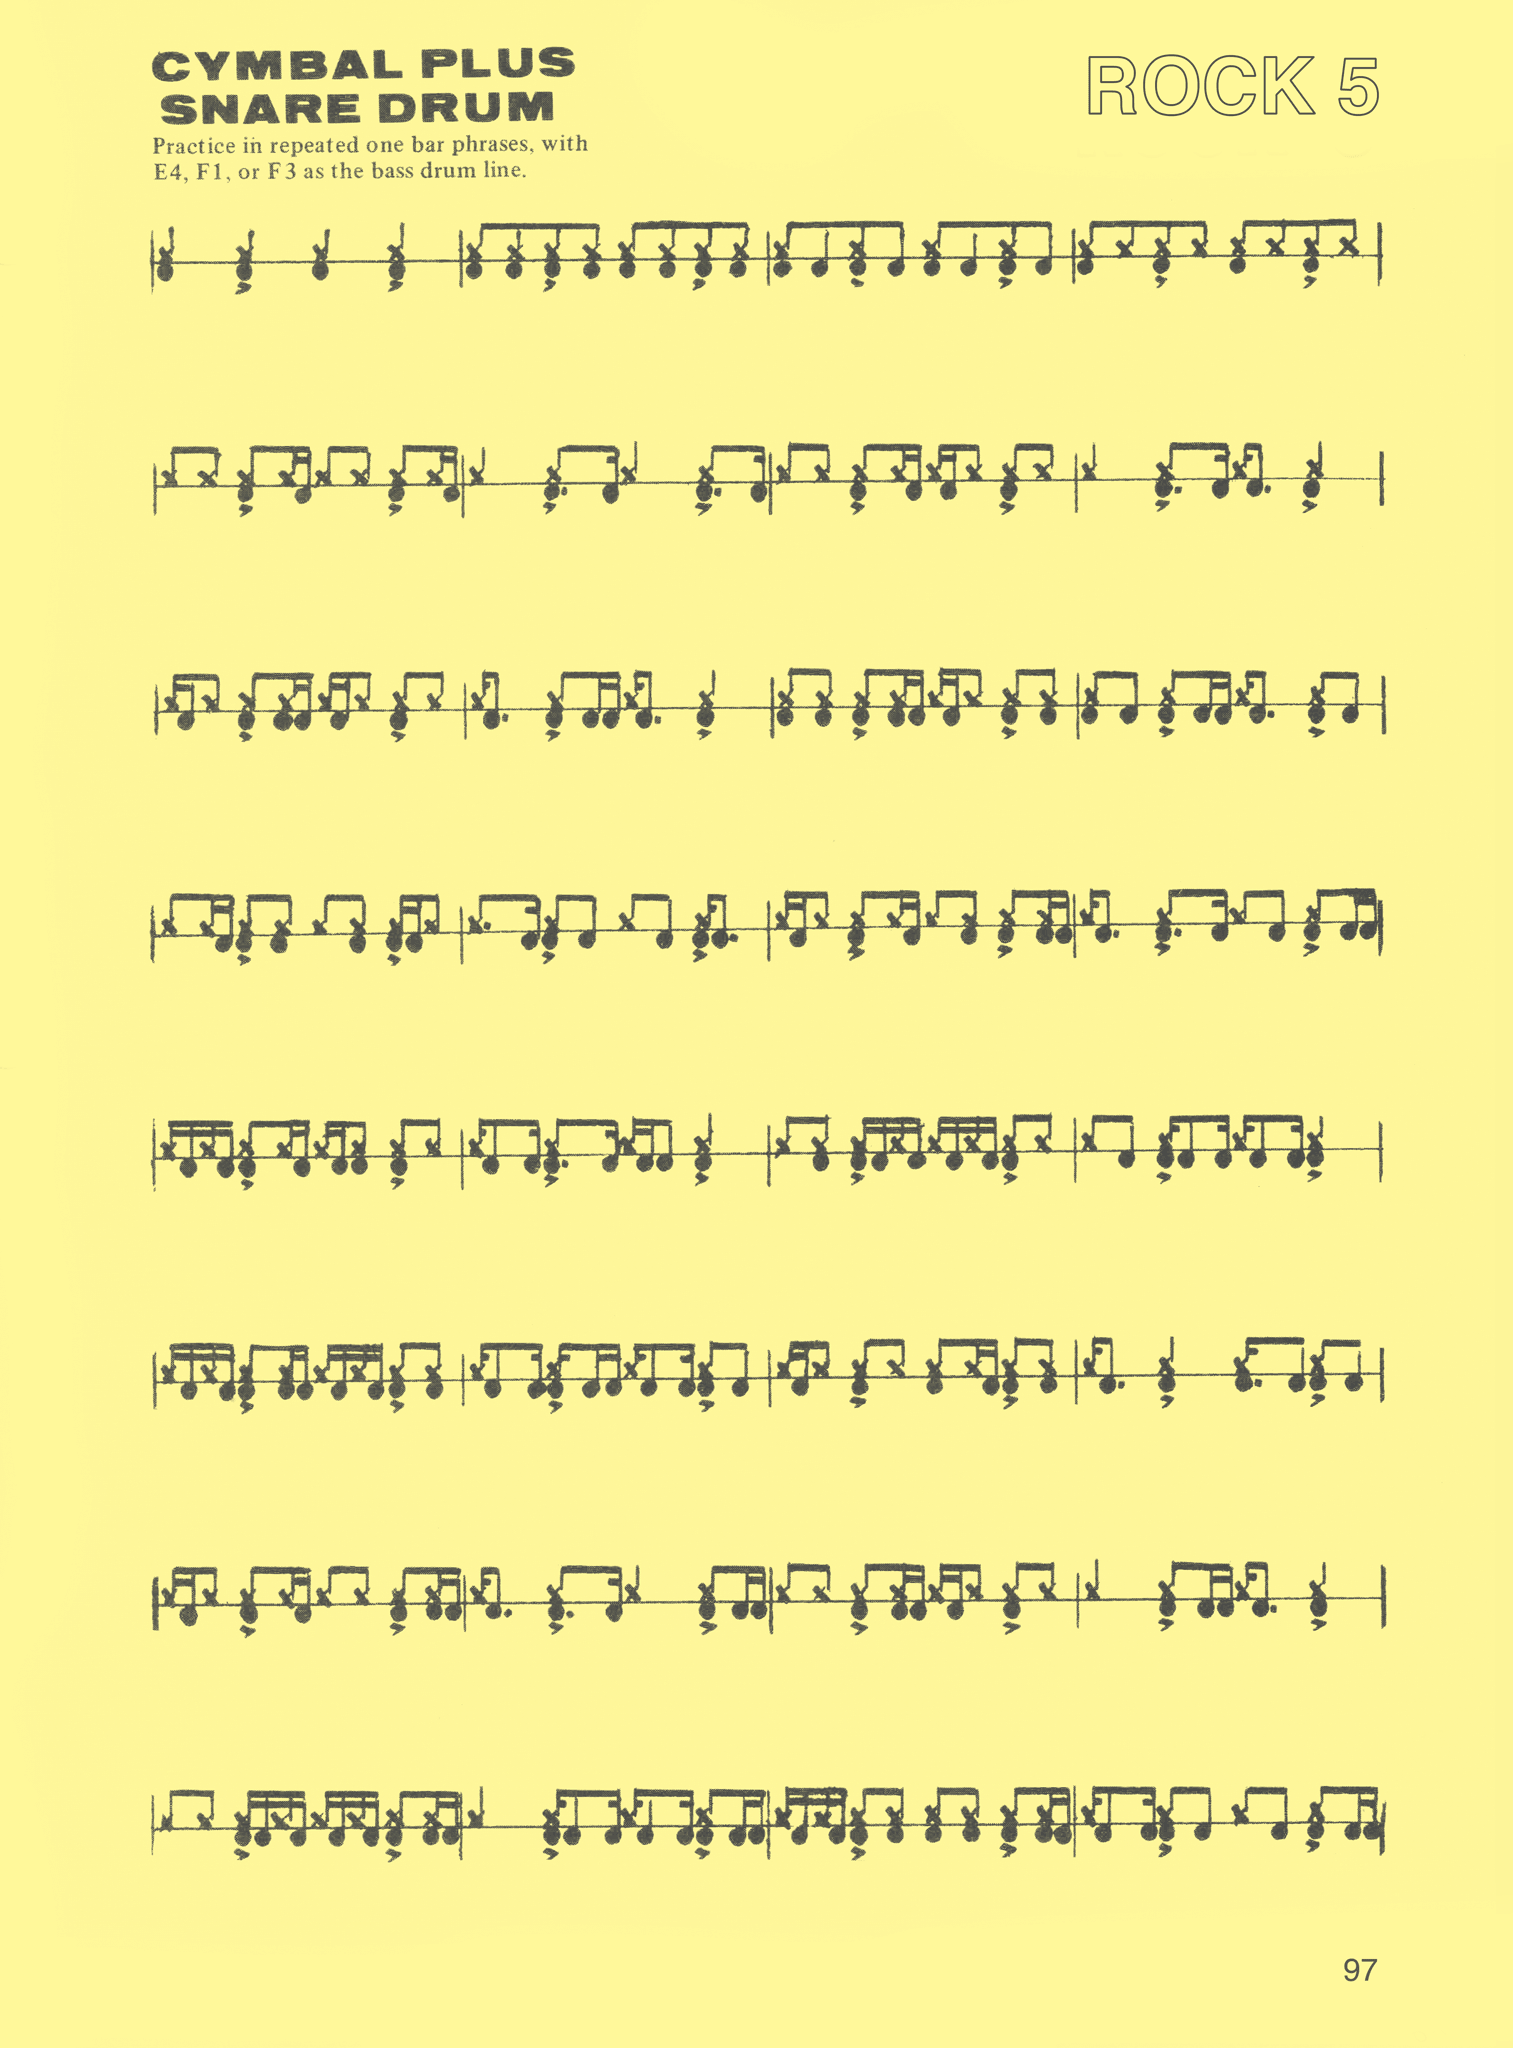 CYMBAL PLUS
SNARE DRUM
ROCK 5
Practice in repeated one bar phrases, with
E4, F1, or F3 as the bass drum line.
97